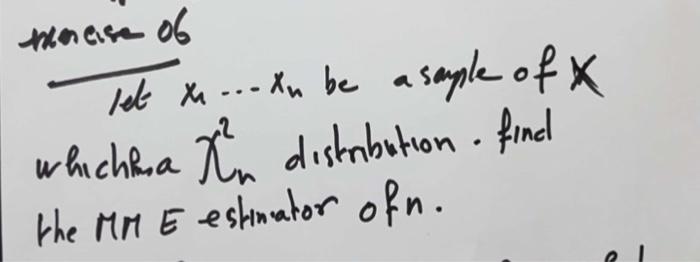 exercise 06
let x₁ ... xₙ be a sample of X
which has a χ²ₙ distribution. find
the MM E estimator of n.